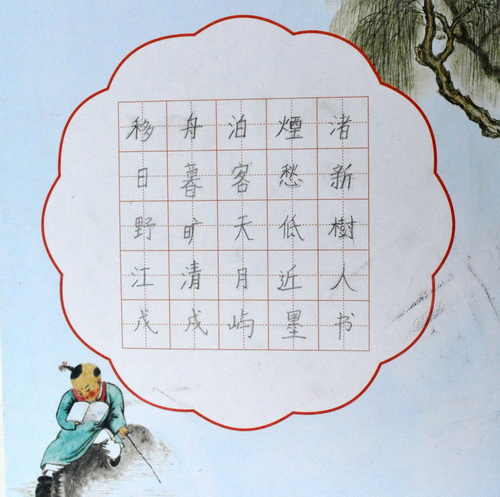 移舟泊煙渚
日暮客愁新
野旷天低樹
江清月近人
戊戌屿墨书